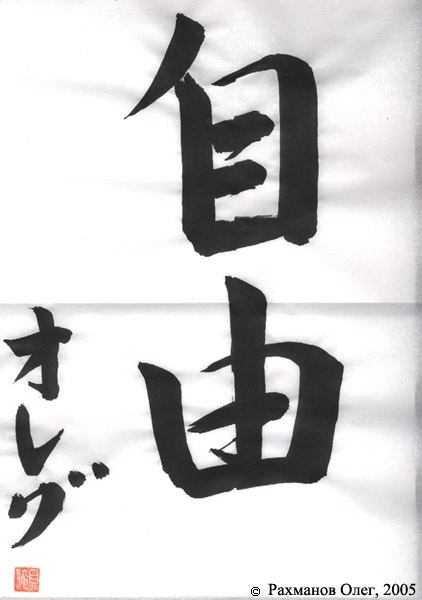 自由
オレグ
© Рахманов Олег, 2005